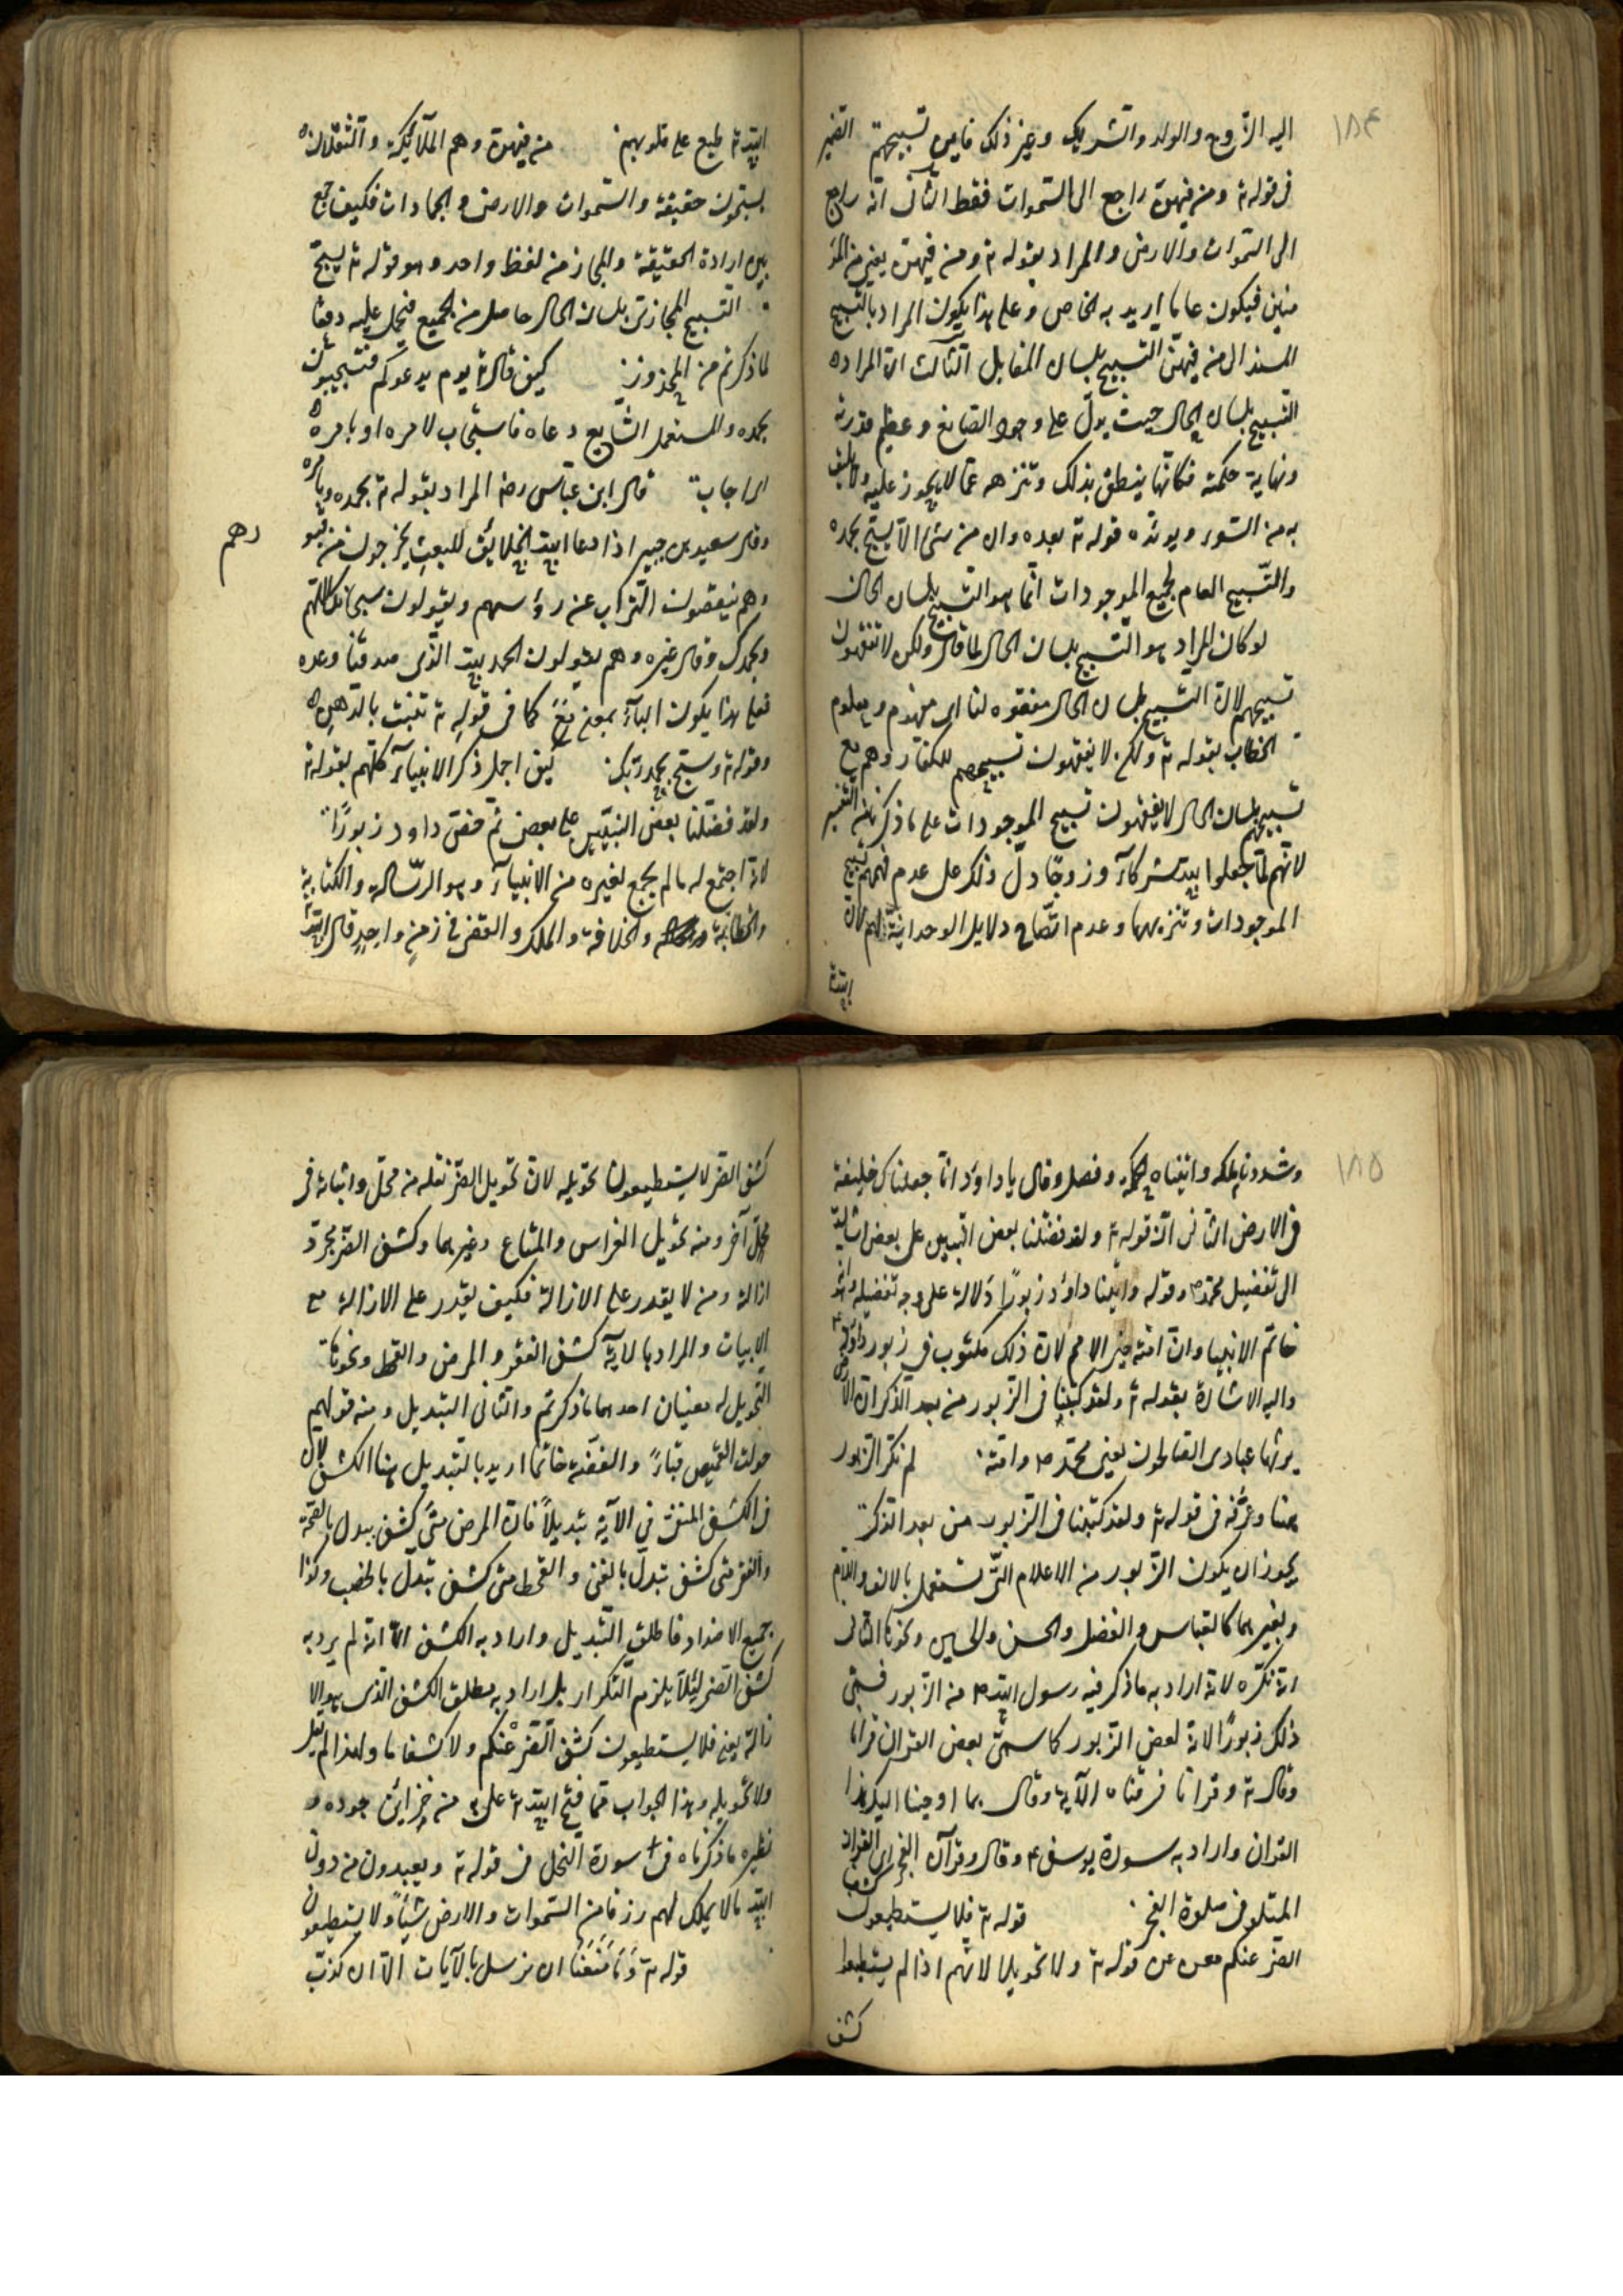 ١٨٤
اليه الزوج والولد والشريك وغير ذلك فاين تسبيحهم الضمير
فى قوله تع ومن فيهن راجع الى السموات فقط الثانى انه راجع
الى السموات والارض والمراد بقوله تع ومن فيهن يعنى من المؤ
منين فيكون عاما اريد به الخاص وعلى هذا يكون المراد بالتسبيح
المسند الى من فيهن التسبيح بلسان المقال الثالث ان المراد ه
التسبيح بلسان الحال حيث يدل على وجود الصانع وعظيم قدرته
ونهاية حكمته فكانها ينطق بذلك وتنزهه عما لا يجوز عليه ولا يليق
به من السوء ويؤيده قوله تع بعده وان من شئ الا يسبح بحمده
والتسبيح العام لجميع الموجودات انما هو التسبيح بلسان الحال
لو كان المراد هو التسبيح بلسان الحال لما قال ولكن لا تفقهون
تسبيحهم لان التسبيح بلسان الحال مفقوه لنا اى مفهوم ومعلوم
الخطاب بقوله تع ولكن لا يفقهون تسبيحهم للكفار وهم مع
تسبيحهم بلسان الحال لا يفقهون تسبيح الموجودات على ما ذكر من التفسير
لانهم لما جعلوا لله شركاء وزوجا دل ذلك على عدم فهمهم تسبيح
الموجودات وتنزيهها وعدم اتضاح دلايل الوحدانية لهم لان
الله تع
الله تع طبع على قلوبهم من فيهن وهم الملائكة والثقلان
يسبحون حقيقة والسموات والارض والجمادات فكيف جمع
بين ارادة الحقيقة والمجاز من لفظ واحد وهو قوله تع يسبح
التسبيح المجازى بلسان الحال حاصل من الجميع فيحمل عليه دفعا
لما ذكرتم من المحذور كيف قال تع يوم يدعوكم فتستجيبون
بحمده والمستعمل الشايع دعاه فاستجاب لامره او بامره
اى اجاب قال ابن عباس رض المراد بقوله تع بحمده بامره
وقال سعيد بن جبير اذا دعا الله الخلايق للبعث يخرجون من قبو
رهم
وهم ينفضون التراب عن رؤسهم ويقولون سبحانك اللهم
وبحمدك وقال غيره وهم يقولون الحمد لله الذى صدقنا وعده
فعلى هذا يكون الباء بمعنى مع كما فى قوله تع تنبت بالدهن
وقوله تع وسبح بحمد ربك كيف اجمل ذكر الانبياء كلهم بقوله تع
ولقد فضلنا بعض النبيين على بعض ثم خص داود زبورا
لانه اجتمع له ما لم يجمع لغيره من الانبياء وهو الرسالة والكتابة
والخطابة والخلافة والملك والقضا فى زمن واحد قال الله تع
١٨٥
وشددنا ملكه واتيناه الحكمة وفصل وقال يا داود انا جعلناك خليفة
فى الارض الثانى ان قوله تع ولقد فضلنا بعض النبيين على بعض اشارة
الى تفضيل محمد ص وقوله واتينا داود زبورا دلالة على وجه تفضيله وانه
خاتم الانبيا وان امته خير الامم لان ذلك مكتوب فى زبور داود
واليه الاشارة بقوله تع ولقد كتبنا فى الزبور من بعد الذكر ان الارض
يرثها عبادى الصالحون يعنى محمد ص وامته لم نكر الزبور
هنا وعرفه فى قوله تع ولقد كتبنا فى الزبور من بعد الذكر
يجوز ان يكون الزبور من الاعلام التى تستعمل بالالف واللام
وبغيرهما كالعباس والفضل والحسن والحسين ونحوها الثانى
انه نكره لانه اراد به ما ذكر فيه رسول الله ص من الزبور فسمى
ذلك زبورا لانه بعض الزبور كما سمى بعض القران قرانا
وقال تع وقرانا فرقناه الآية وقال بما اوحينا اليك هذا
القران واراد به سورة يوسف ع وقال وقرآن الفجر اى القران
المتلو فى صلوة الفجر قوله تع فلا يستطيعون كشف
الضر عنكم مغن عن قوله تع ولا تحويلا لانهم اذا لم يستطيعوا
كشف
كشف الضر لا يستطيعون تحويله لان تحويل الضر نقله من محل واثباته فى
محل آخر ومنه تحويل الفراس والمتاع وغيرهما وكشف الضر مجرد
ازالة ومن لا يقدر على الازالة فكيف يقدر على الازالة مع
الاثبات والمراد بالآية كشف الفقر والمرض والقحط ونحوها
التحويل له معنيان احدهما ما ذكرتم والثانى التبديل ومنه قولهم
حولت القميص قباء والفضة خاتما اريد بالتبديل هنا الكشف لان
فى الكشف المنفى فى الآية تبديلا فان المرض متى كشف يبدل بالصحة
والفقر متى كشف تبدل بالغنى والقحط متى كشف تبدل بالخصب وكذا
جميع الاضداد فاطلق التبديل واراد به الكشف الا انه لم يرد به
كشف الضر لئلا يلزم التكرار بل اراد به مطلق الكشف الذى هو الا
زالة يعنى فلا يستطيعون كشف الضر عنكم ولا كشفا ما ولهذا لم يقل
ولا تحويله وهذا الجواب مما فتح الله تع على من خزائن جوده و
نظيره ما ذكرناه فى سورة النحل فى قوله تع ويعبدون من دون
الله مالا يملك لهم رزقا من السموات والارض شيأ ولا يستطيعون
قوله تع وما منعنا ان نرسل بالآيات الا ان كذب